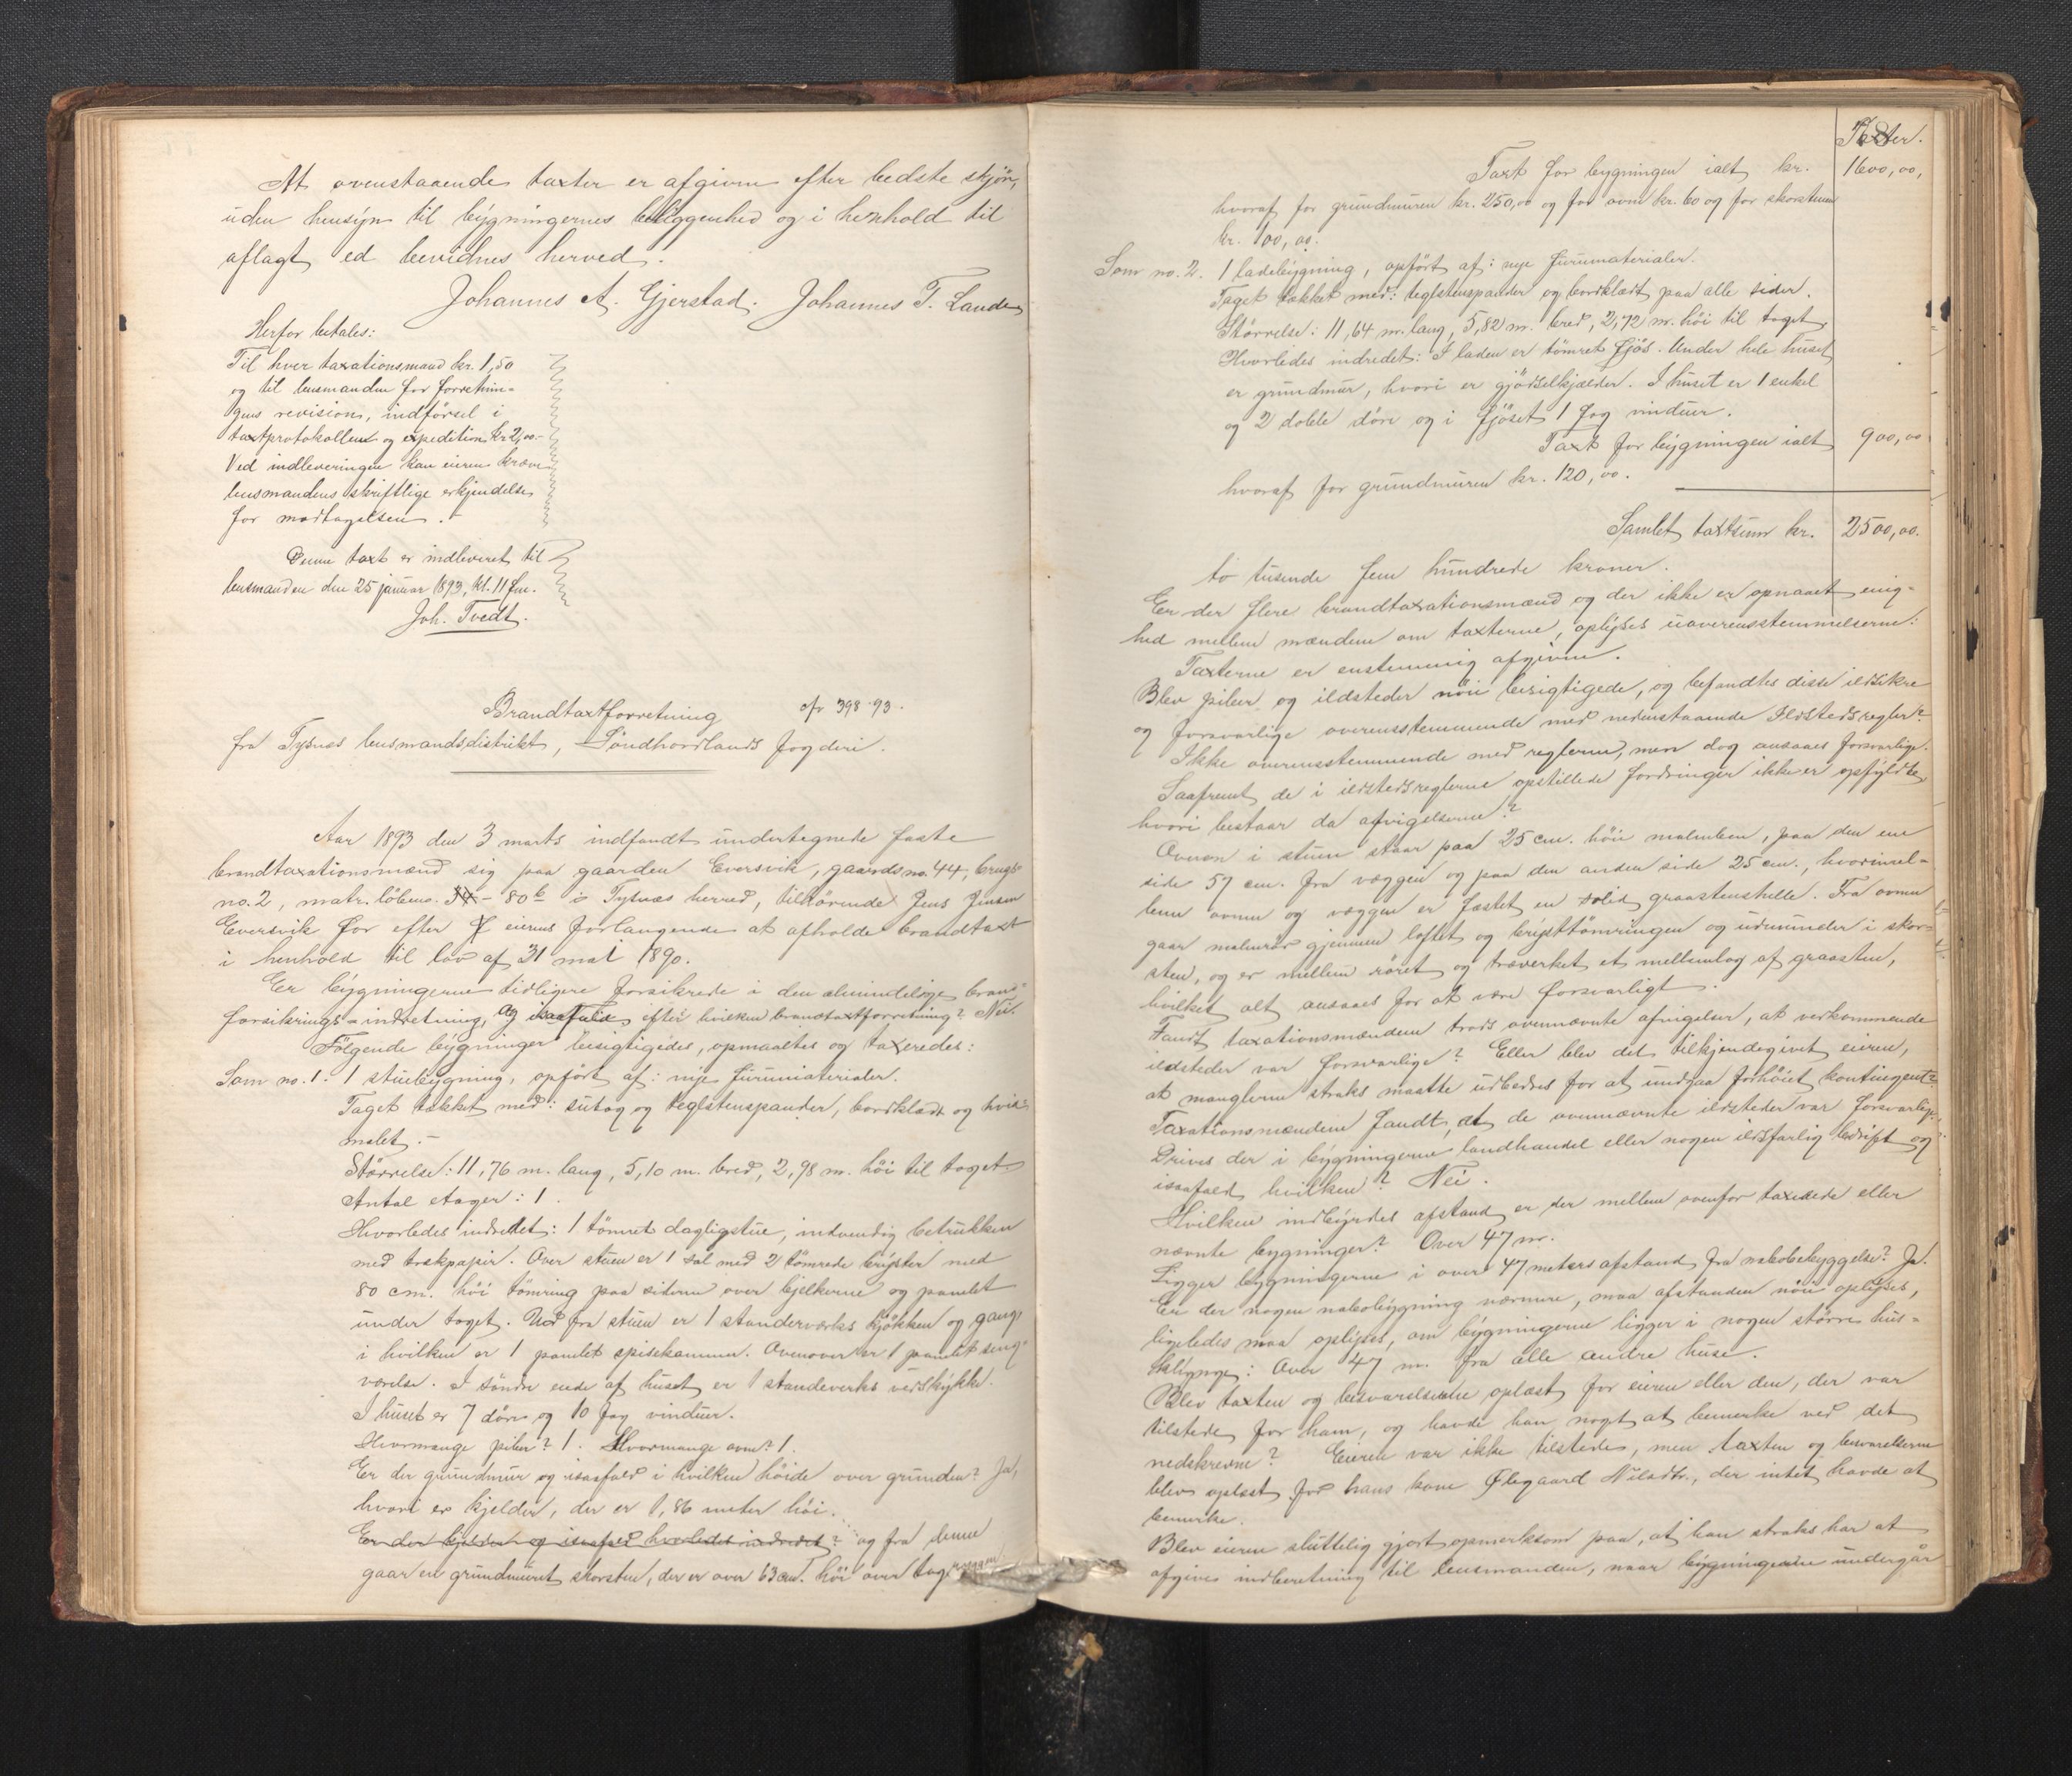 At ovenstaaende taxter er afgivne efter bedste skjön,
uden hensyn til bygningernes beliggenhed og i henhold til
aflagt ed bevidnes herved.
Johannes A. Gjerstad. Johannes T. Lande
Herfor betales:
Til hver taxationsmand kr. 1,50
og til lensmanden for forretnin-
gens revision, indförsel i
taxtprotokollen og expedition kr 2,00.-
Ved indleveringen kan eieren kræve
lensmandens skriftlige erkjendelse
for modtagelsen.-
Denne taxt er indleveret til
lensmanden den 25 januar 1893, kl. 11 fm.
Joh. Tvedt.
Brandtaxtforretning cfr 398-93.
fra Tysnes lensmandsdistrikt, Söndhordlands fogderi.
Aar 1893 den 3 marts indfandt undertegnede faste
brandtaxationsmænd sig paa gaarden Eversvik, gaards no. 44, brugs
no. 2, matr. löbeno. - 80 b i Tysnæs herred, tilhörende Jens Jensen
Eversvik for efter eierens forlangende at afholde brandtaxt
i henhold til lov af 31 mai 1890.
Er bygningerne tidligere forsikrede i den almindelige brand-
forsikrings-indretning, og isaafald, efter hvilken brandtaxtforretning? Nei.
Fölgende bygninger besigtigedes, opmaaltes og taxeredes:
Som no. 1. 1 stuebygning, opfört af: nye furumaterialer.
Taget tækket med: sutag og teglstenspander, bordklædt og hvid-
malet.-
Störrelse: 11,76 m. lang, 5,10 m. bred, 2,98 m. höi til taget
Antal etager: 1.
Hvorledes indredet: 1 tömret dagligstue, indvendig betrukken
med trækpapir. Over stuen er 1 sal med 2 tömrede bryster med
80 cm. höi tömring paa siderne over bjelkerne og panelet
under taget. Ud fra stuen er 1 standerværks kjökken og gang
i hvilken er 1 panelet spisekammer. Ovenover er 1 panelet seng-
værelse. I söndre ende af huset er 1 standeverks vedskykke.
I huset er 7 döre og 10 fag vinduer.
Hvormange piber? 1. Hvormange ovne? 1.
Er der grundmur og isaafald i hvilken höide over grunden? Ja,
hvori er kjelder, der er 1,86 meter höi.
Er der kjelder og isaafald hvorledes indredet? og fra denne
gaar en grundmuret skorsten, der er over 63 cm. höi over tagryggen
Taxter.
Taxt for bygningen ialt kr. 1600,00,
hvoraf for grundmuren kr. 250,00 og for ovne kr. 60 og for skorstenen
kr. 100,00.
Som no. 2. 1 ladebygning, opfört af: nye furumaterialer.
Taget tækket med: teglstenspander og bordklædt paa alle sider.
Störrelse: 11,64 m. lang, 5,82 m. bred, 2,72 m. höi til taget.
Hvorledes indredet: I laden er tömret fjös. Under hele huset
er grundmur, hvori er gjödselkjælder. I huset er 1 enkel
og 2 doble döre og i fjöset 1 fag vinduer.
Taxt for bygningen ialt 900,00
hvoraf for grundmuren kr. 120,00.
Samlet taxtsum kr. 2500,00.
to tusende fem hundrede kroner.
Er der flere brandtaxationsmænd og der ikke er opnaaet enig-
hed mellem mændene om taxterne, oplyses uoverensstemmelserne:
Taxterne er enstemmig afgivne.
Blev piber og ildsteder nöie besigtigede, og befandtes disse ildsikre
og forsvarlige overensstemmende med nedenstaaende Ildstedsregler?
Ikke overensstemmende med reglerne, men dog ansaaes forsvarlige.
Saafremt de i ildstedsreglerne opstillede fordringer ikke er opfyldte,
hvori bestaar da afvigelserne?
Ovnen i stuen staar paa 25 cm. höie malmben, paa den ene
side 57 cm. fra væggen og paa den anden side 25 cm., hvorimel-
lem ovnen og væggen er fæstet en solid graastenshelle. Fra ovnen
gaar malmrör gjennem loftet og brysttömringen og udenunder i skor-
sten, og er mellem röret og træverket et mellemlag af graasten,
hvilket alt ansaaes for at være forsvarligt.
Fandt taxationsmændene trods ovennævnte afvigelser, at vedkommende
ildsteder var forsvarlige? Eller blev det tilkjendegivet eieren,
at manglerne straks maatte udbedres for at undgaa forhöiet kontingent?
Taxationsmændene fandt, at de ovennævnte ildsteder var forsvarlige.
Drives der i bygningerne landhandel eller nogen ildsfarlig bedrift og
isaafald hvilken? Nei.
Hvilken indbyrdes afstand er der mellem ovenfor taxerede eller
nævnte bygninger? Over 47 m.
Ligger bygningerne i over 47 meters afstand fra nabobebyggelse? Ja.
Er der nogen nabobygning nærmere, maa afstanden nöie oplyses,
ligeledes maa oplyses, om bygningerne ligger i nogen större hus-
klynge: Over 47 m. fra alle andre huse.
Blev taxten og besvarelserne oplæst for eieren eller den, der var
tilstede for ham, og havde han noget at bemerke ved det
nedskrevne? Eieren var ikke tilstede, men taxten og besvarelserne
blev oplæst for hans kone Ølegaard Nilsdtr., der intet havde at
bemerke.
Blev eieren sluttelig gjort opmerksom paa, at han straks har at
afgive indberetning til lensmanden, naar bygningerne undergår